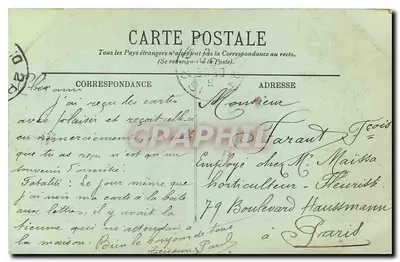 CARTE POSTALE
Tous les Pays étrangers n'acceptent pas la Correspondance au recto.
(Se renseigner à la Poste).
CORRESPONDANCE
ADRESSE
Cher ami
j'ai reçu tes cartes
avec plaisir et reçoit celle ci
en remerciement
que tu as reçu n'est qu'un
souvenir
Fatalité : Le jour même que
j'ai mis ma carte à la boîte
aux lettres, il y avait la
tienne qui m'attendait à
la maison. Bien le bonjour de tous
Paul
Monsieur
Faraut Fçois
Employé chez Mr Maissa
horticulteur - Fleuriste
79 Boulevard Haussmann
à Paris
CPArama